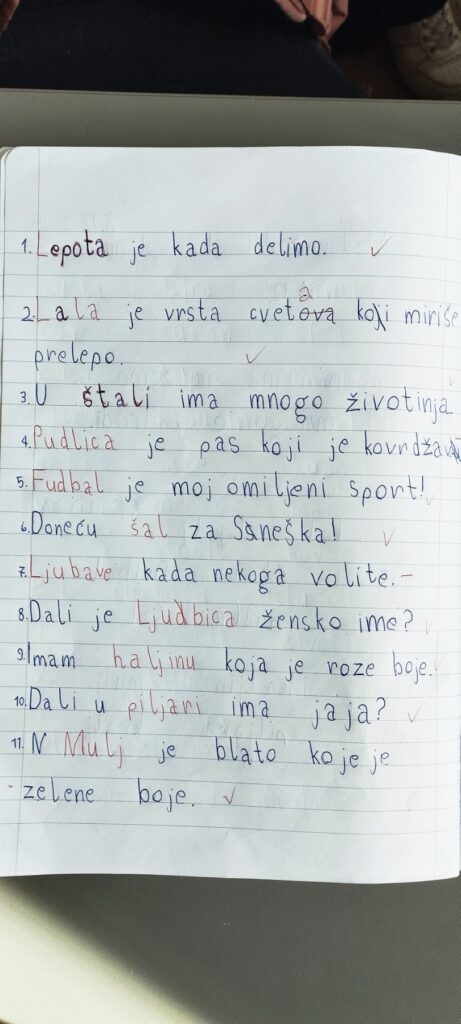 1. Lepota je kada delimo.
2. Lala je vrsta cveta koji miriše
prelepo.
3. U štali ima mnogo životinja
4. Pudlica je pas koji je
5. Fudbal je moj omiljeni sport!
6. Doneću šal za Saneška!
7. Ljubave kada nekoga volite.
8. Dali je Ljudbica žensko ime?
9. Imam haljinu koja je roze boje.
10. Dali u piljari ima jaja?
11. Mulj je blato koje je
zelene boje.